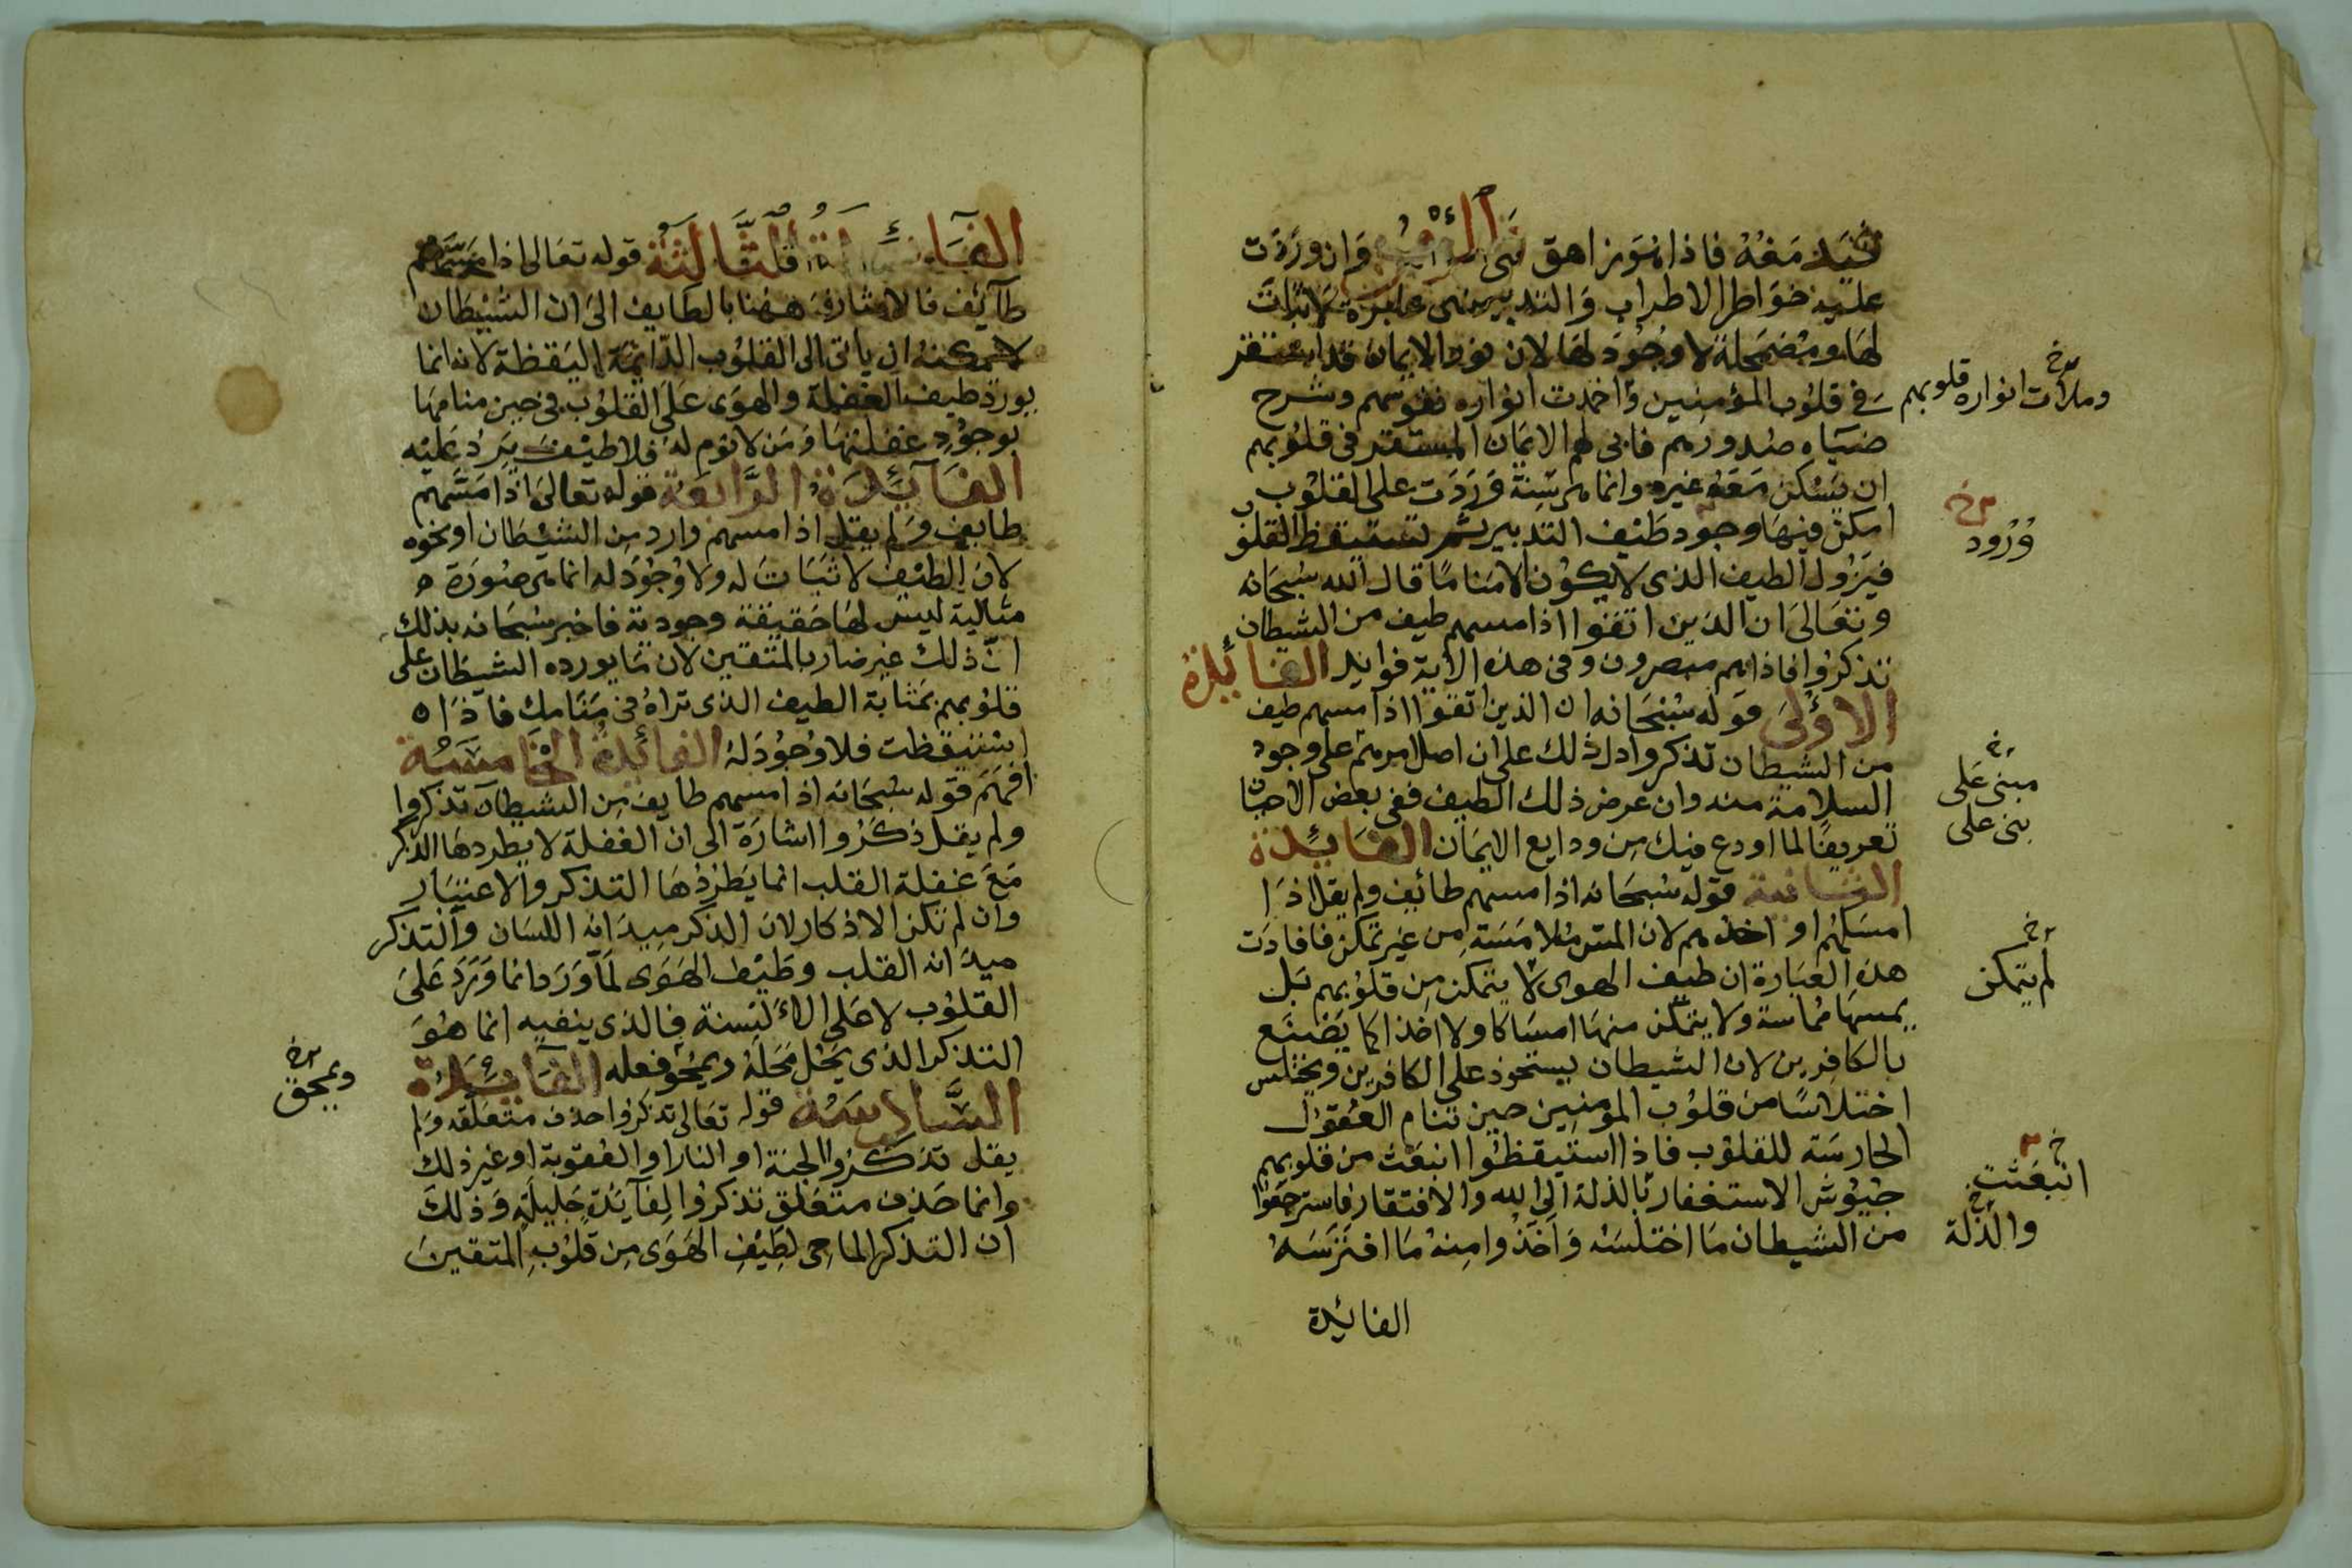 فيدمغه فاذا هو زاهق وان وردت
عليه خواطر الاطراب والتدبير فهى عابرة لا ثبات
لها ومضمحلة لا وجود لها لان نور الايمان قد استقر
فى قلوب المؤمنين واخمدت انواره نفوسهم وشرح
وملأت انواره قلوبهم خ
ضياه صدورهم فابى لهم الايمان المستقر فى قلوبهم
ان يسكن معه غيره وانما هى سنة وردت على القلوب
امكن فيها وجود طيف التدبير ثم تستيقظ القلوب
ورود خ
فيزول الطيف الذى لا يكون الا مناما قال الله سبحانه
وتعالى ان الذين اتقوا اذا مسهم طيف من الشيطان
تذكروا فاذا هم مبصرون وفى هذه الاية فوايد الفائدة
الاولى قوله سبحانه ان الذين اتقوا اذا مسهم طيف
من الشيطان تذكروا دل ذلك على ان اصل امرهم على وجود
مبنى على خ
السلامة منه وان عرض ذلك الطيف ففى بعض الاحيان
بنى على
تعريفا لما اودع فيك من ودايع الايمان الفائدة
الثانية قوله سبحانه اذا مسهم طائف ولم يقل اذا
امسكهم او اخذهم لان المس ملامسة من غير تمكن فافادت
هذه العبارة ان طيف الهوى لا يتمكن من قلوبهم بل
لم يتمكن خ
يمسها مماسة ولا يتمكن منها امساكا ولا اخذا كما يصنع
بالكافرين لان الشيطان يستحوذ على الكافرين ويختلس
اختلاسا من قلوب المؤمنين حين تنام العقول
الحارسة للقلوب فاذا استيقظوا انبعث من قلوبهم
انبعثت خ
جيوش الاستغفار بالذلة الى الله والافتقار فاسترجعوا
والذلة خ
من الشيطان ما اختلسه واخذوا منه ما افترسه
الفائدة
الفائدة الثالثة قوله تعالى اذا مسهم
طآئف فالاشارة ههنا بالطايف الى ان الشيطان
لا يمكنه ان ياتى الى القلوب الدائمة اليقظة لانه انما
يورد طيف الغفلة والهوى على القلوب فى حين منامها
بوجود غفلتها ومن لا نوم له فلا طيف يرد عليه
الفائدة الرابعة قوله تعالى اذا مسهم
طايف ولم يقل اذا مسهم وارد من الشيطان او نحوه
لان الطيف لا ثبات له ولا وجود له انما هى صورة ه
مثالية ليس لها حقيقة وجودية فاخبر سبحانه بذلك
ان ذلك غير ضار بالمتقين لان ما يورده الشيطان على
قلوبهم بمثابة الطيف الذى تراه فى منامك فاذا ه
استيقظت فلا وجود له الفائدة الخامسة
افهم قوله سبحانه اذا مسهم طايف من الشيطان تذكروا
ولم يقل ذكروا اشارة الى ان الغفلة لا يطردها الذكر
مع غفلة القلب انما يطردها التذكر والاعتبار
وان لم تكن الاذكار لان الذكر ميدانه اللسان والتذكر
ميدانه القلب وطيف الهوى لما ورد انما ورد على
القلوب لا على الألسنة فالذى ينفيه انما هو
التذكر الذى يحل محله ويمحو فعله الفائدة
ويمحق خ
السادسة قوله تعالى تذكروا حذف متعلقه ولم
يقل تذكروا الجنة او النار او العقوبة او غير ذلك
وانما حذف متعلق تذكروا لفآئدة جليلة وذلك
ان التذكر الماحى لطيف الهوى من قلوب المتقين